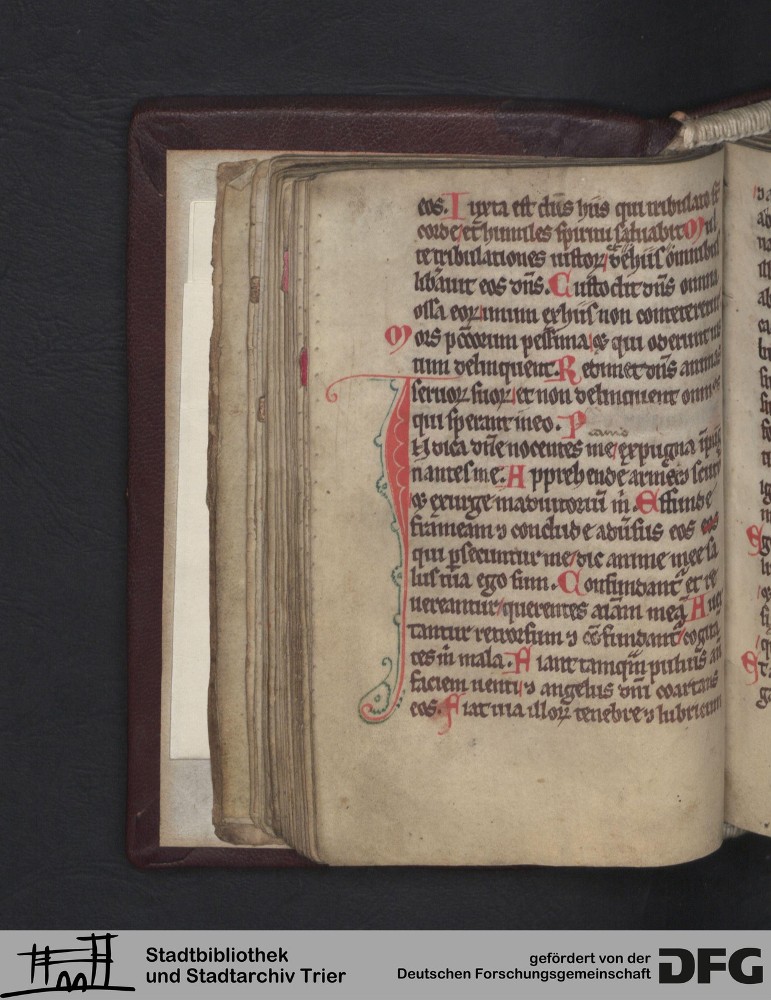 eos. Iuxta est dn̄s hiis qui tribulato st̄
corde et humiles spiritu saluabit Mul
te tribulationes iustoꝝ de hiis omnibus
libauit eos dn̄s. Custodit dn̄s omnia
ossa eoꝝ unum ex hiis non conteretur
Mors pctōrum pessima ⁊ qui oderunt ius
tum delinquent. Redimet dn̄s animas
seruoꝝ suoꝝ et non delinquent omnes
qui sperant in eo. P
Iudica dn̄e nocentes me expugna īpug
nantes me. Apprehende arma ⁊ scutū
⁊ exurge in adiutoriū m̄. Effunde
frameam ⁊ conclude aduersus eos
qui psecuntur me dic anime mee sa
lus tua ego sum. Confundant̄ et re
uereantur querentes aīam meā Auer
tantur retrorsum ⁊ cōfundant̄ cogitā
tes m̄ mala. Fiant tamqm̄ puluis an̄
faciem uenti ⁊ angelus dn̄i coartans
eos. Fiat uia illoꝝ tenebre ⁊ lubricum
Stadtbibliothek
und Stadtarchiv Trier
gefördert von der
Deutschen Forschungsgemeinschaft
DFG